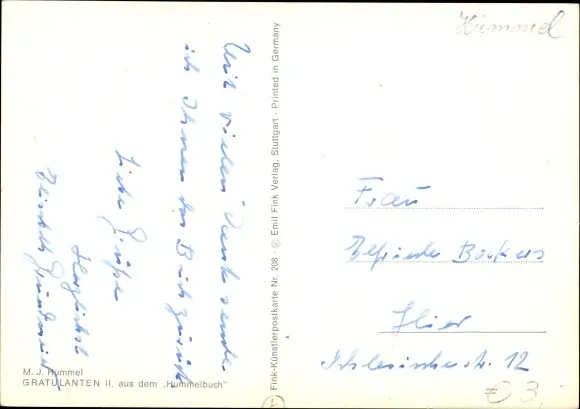 Hummel
Mit vielem Dank sende
ich Ihnen das Buch zurück
Liebe Grüße
Herzlichst
Elisabeth
M. J. Hummel
GRATULANTEN II, aus dem „Hummelbuch"
Fink-Künstlerpostkarte Nr. 208 · © Emil Fink Verlag, Stuttgart · Printed in Germany
Frau
Elfriede Böckers
Hier
Schlesische str. 12
€ 3,